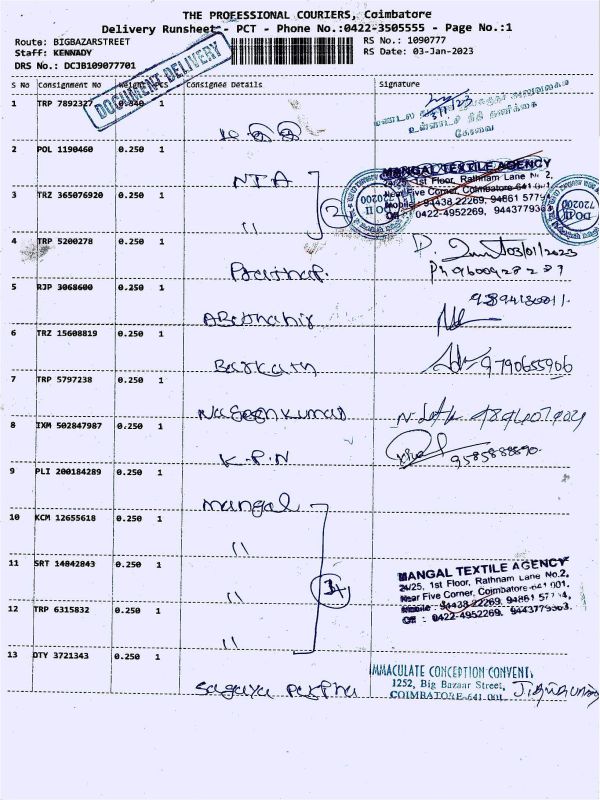 THE PROFESSIONAL COURIERS, Coimbatore
Delivery Runsheet - PCT - Phone No.:0422-3505555 - Page No.:1
Route: BIGBAZARSTREET
RS No.: 1090777
Staff: KENNADY
RS Date: 03-Jan-2023
DRS No.: DCJB109077701
DOCUMENT DELIVERY
S No Consignment No Weight Pcs Consignee Details Signature
1 TRP 7892327 0.340 1
3/1/23
கோவை
2 POL 1190460 0.250 1
NTA
MANGAL TEXTILE AGENCY
24/25, 1st Floor, Rathnam Lane No.2,
Near Five Corner, Coimbatore-641 001.
3 TRZ 365076920 0.250 1
"
2
4 TRP 5200278 0.250 1
Prathap.
03/01/2023
5 RJP 3068600 0.250 1
6 TRZ 15608819 0.250 1
Barkath
9790655906
7 TRP 5797238 0.250 1
Naseenkumar
8 IXM 502847987 0.250 1
K.P.N
9585888690
9 PLI 200184289 0.250 1
mangal
10 KCM 12655618 0.250 1
"
11 SRT 14842843 0.250 1
"
MANGAL TEXTILE AGENCY
24/25, 1st Floor, Rathnam Lane No.2,
Near Five Corner, Coimbatore-641 001.
Mobile : 94438 22269, 94861 57794,
Off : 0422-4952269, 9443779363.
12 TRP 6315832 0.250 1
"
13 DTY 3721343 0.250 1
Sagaya
IMMACULATE CONCEPTION CONVENT,
1252, Big Bazaar Street,
COIMBATORE-641 001